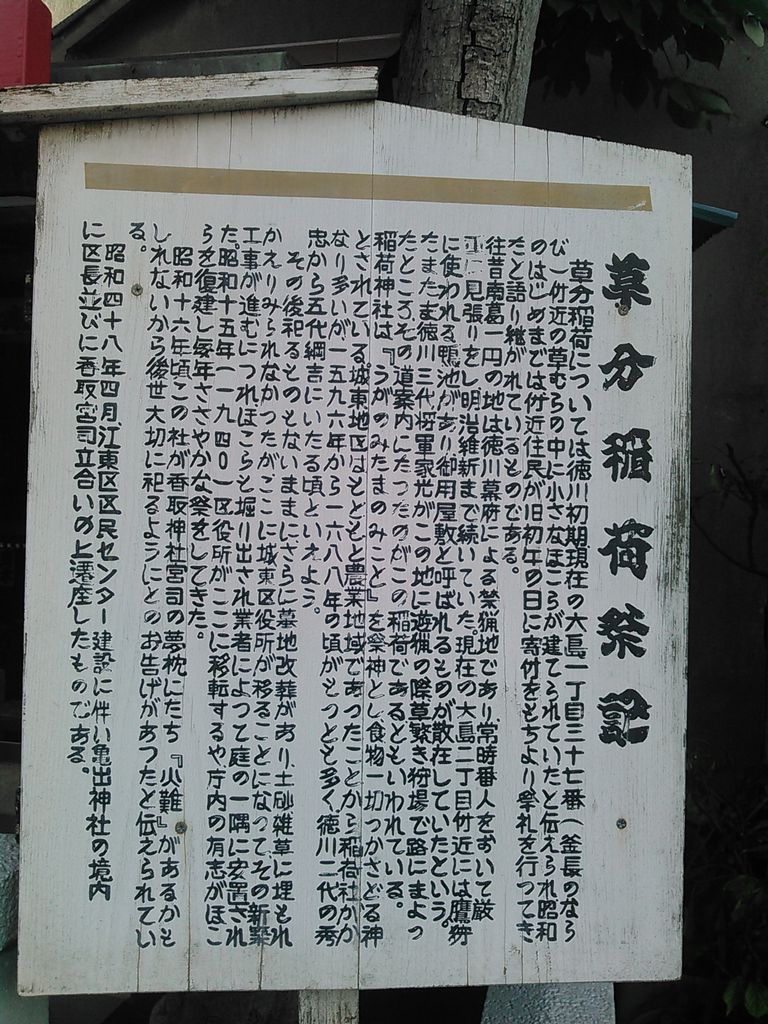 草分稲荷祭記
草分稲荷については徳川初期現在の大島一丁目三十七番(釜長のなら
び)付近の草むらの中に小さなほこらが建てられていたと伝えられ昭和
のはじめまでは付近住民が旧初午の日に寄付をもちより祭礼を行つてき
たと語り継がれているものである。
往昔南葛一円の地は徳川幕府による禁猟地であり、常時番人をおいて厳
重に見張りをし明治維新まで続いていた。現在の大島二丁目付近には鷹狩
に使われる鴨池があり御用屋敷と呼ばれるものが散在していたという。
たまたま徳川三代将軍家光がこの地に遊猟の際草繁き狩場で路にまよっ
たところ、その道案内にたつたのがこの稲荷であるともいわれている。
稲荷神社は『うがのみたまのみこと』を祭神とし、食物一切つかさどる神
とされている。城東地区はもともと農業地域であったことから稲荷社がか
なり多いが、一五九六年から一六八八年の頃がもつとも多く徳川二代の秀
忠から五代綱吉にいたる頃といえよう。
その後祀るものもないままにさらに墓地改葬があり、土砂雑草に埋もれ
かえりみられなかつたがここに城東区役所が移ることになって、その新築
工事が進むにつれほこらも堀り出され業者によつて庭の一隅に安置され
た。昭和十五年(一九四〇)区役所がここに移転するや庁内の有志がほこ
らを復建し毎年ささやかな祭をしてきた。
昭和十六年頃この社が香取神社宮司の夢枕にたち『火難』があるかも
しれないから後世大切に祀るようにとのお告げがあつたと伝えられてい
る。
昭和四十八年四月江東区区民センター建設に伴い亀出神社の境内
に区長並びに香取宮司立合いの上遷座したものである。